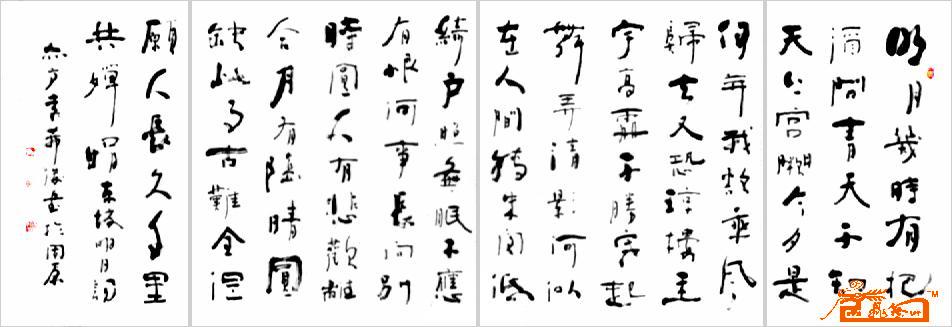 明月幾時有把
酒問青天不知
天上宮闕今夕是
何年我欲乘風
歸去又恐瓊樓玉
宇高處不勝寒起
舞弄清影何似
在人間轉朱閣低
綺户照無眠不應
有恨何事長向别
時圓人有悲歡離
合月有陰晴圓
缺此事古難全但
願人長久千里
共嬋娟東坡明月詞
書於